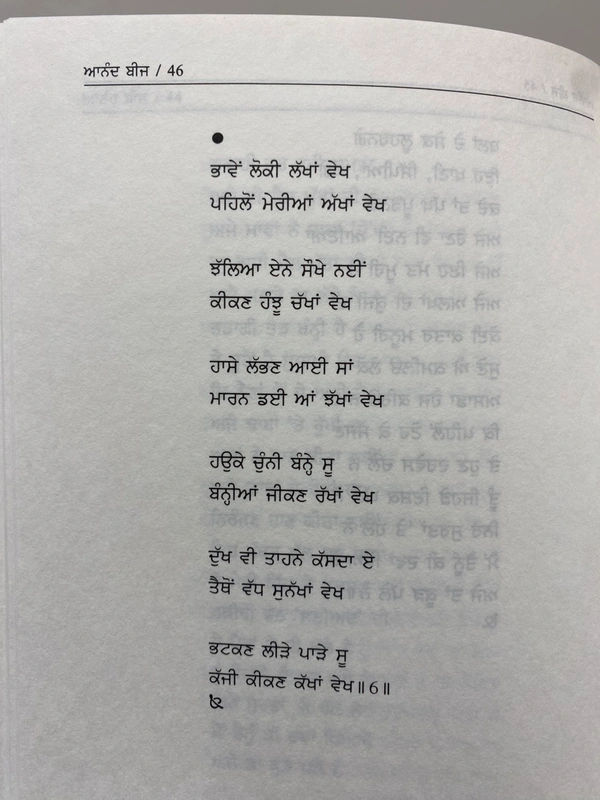 ਆਨੰਦ ਬੀਜ / 46
●
ਭਾਵੇਂ ਲੋਕੀ ਲੱਖਾਂ ਵੇਖ
ਪਹਿਲੋਂ ਮੇਰੀਆਂ ਅੱਖਾਂ ਵੇਖ
ਝੱਲਿਆ ਏਨੇ ਸੌਖੇ ਨਈਂ
ਕੀਕਣ ਹੰਝੂ ਚੱਖਾਂ ਵੇਖ
ਹਾਸੇ ਲੱਭਣ ਆਈ ਸਾਂ
ਮਾਰਨ ਡਈ ਆਂ ਝੱਖਾਂ ਵੇਖ
ਹਉਕੇ ਚੁੰਨੀ ਬੰਨ੍ਹੇ ਸੂ
ਬੰਨ੍ਹੀਆਂ ਜੀਕਣ ਰੱਖਾਂ ਵੇਖ
ਦੁੱਖ ਵੀ ਤਾਹਨੇ ਕੱਸਦਾ ਏ
ਤੈਥੋਂ ਵੱਧ ਸੁਨੱਖਾਂ ਵੇਖ
ਭਟਕਣ ਲੀੜੇ ਪਾੜੇ ਸੂ
ਕੱਜੀ ਕੀਕਣ ਕੱਖਾਂ ਵੇਖ॥6॥